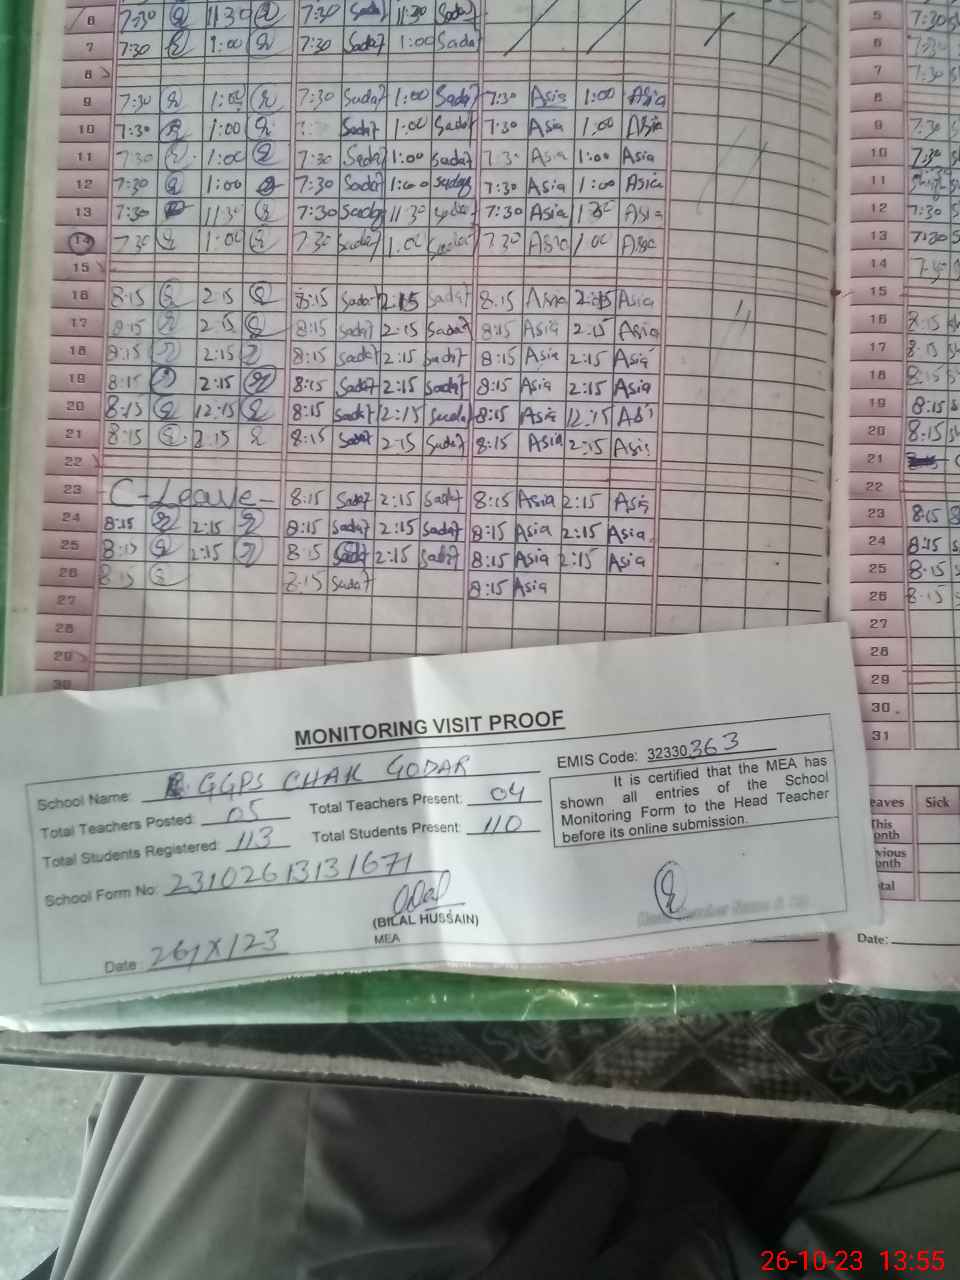 6 7:30 11:30 7:30 Sadaf 11:30 Sadaf 5 7:30
7 7:30 1:00 7:30 Sadaf 1:00 Sadaf 6 7:30
8 7
9 7:30 1:00 7:30 Sadaf 1:00 Sadaf 7:30 Asia 1:00 Asia 8
10 7:30 1:00 Sadaf 1:00 Sadaf 7:30 Asia 1:00 Asia 9 7:30
11 7:30 1:00 7:30 Sadaf 1:00 Sadaf 7:30 Asia 1:00 Asia 10 7:30
12 7:30 1:00 7:30 Sadaf 1:00 Sadaf 7:30 Asia 1:00 Asia 11
13 7:30 11:30 7:30 Sadaf 11:30 7:30 Asia Asia 12 7:30
14 7:30 1:00 7:30 Sadaf 1:00 Sadaf 7:30 Asia 1:00 Asia 13 7:30
15 14
16 8:15 2:15 8:15 Sadaf 2:15 Sadaf 8:15 Asia 2:15 Asia 15
17 8:15 2:15 8:15 Sadaf 2:15 Sadaf 8:15 Asia 2:15 Asia 16 8:15
18 8:15 2:15 8:15 Sadaf 2:15 Sadaf 8:15 Asia 2:15 Asia 17 8:15
19 8:15 2:15 8:15 Sadaf 2:15 Sadaf 8:15 Asia 2:15 Asia 18 8:15
20 8:15 12:15 8:15 Sadaf 12:15 Sadaf 8:15 Asia 12:15 Asia 19 8:15
21 8:15 2:15 8:15 Sadaf 2:15 Sadaf 8:15 Asia 2:15 Asia 20 8:15
22 21
23 C-Leave 8:15 Sadaf 2:15 Sadaf 8:15 Asia 2:15 Asia 22
24 8:15 2:15 8:15 Sadaf 2:15 Sadaf 8:15 Asia 2:15 Asia 23 8:15
25 8:15 2:15 8:15 Sadaf 2:15 Sadaf 8:15 Asia 2:15 Asia 24 8:15
26 8:15 8:15 Sadaf 8:15 Asia 25 8:15
27 26 8:15
28 27
29 28
30 29
30
31
MONITORING VISIT PROOF
School Name: GGPS CHAK GODAR EMIS Code: 32330363
Total Teachers Posted: 05 Total Teachers Present: 04
Total Students Registered: 113 Total Students Present: 110
School Form No: 23102613131671
It is certified that the MEA has
shown all entries of the School
Monitoring Form to the Head Teacher
before its online submission.
(BILAL HUSSAIN)
MEA
Date: 26/X/23
eaves Sick
This
onth
vious
onth
tal
Date:
26-10-23 13:55